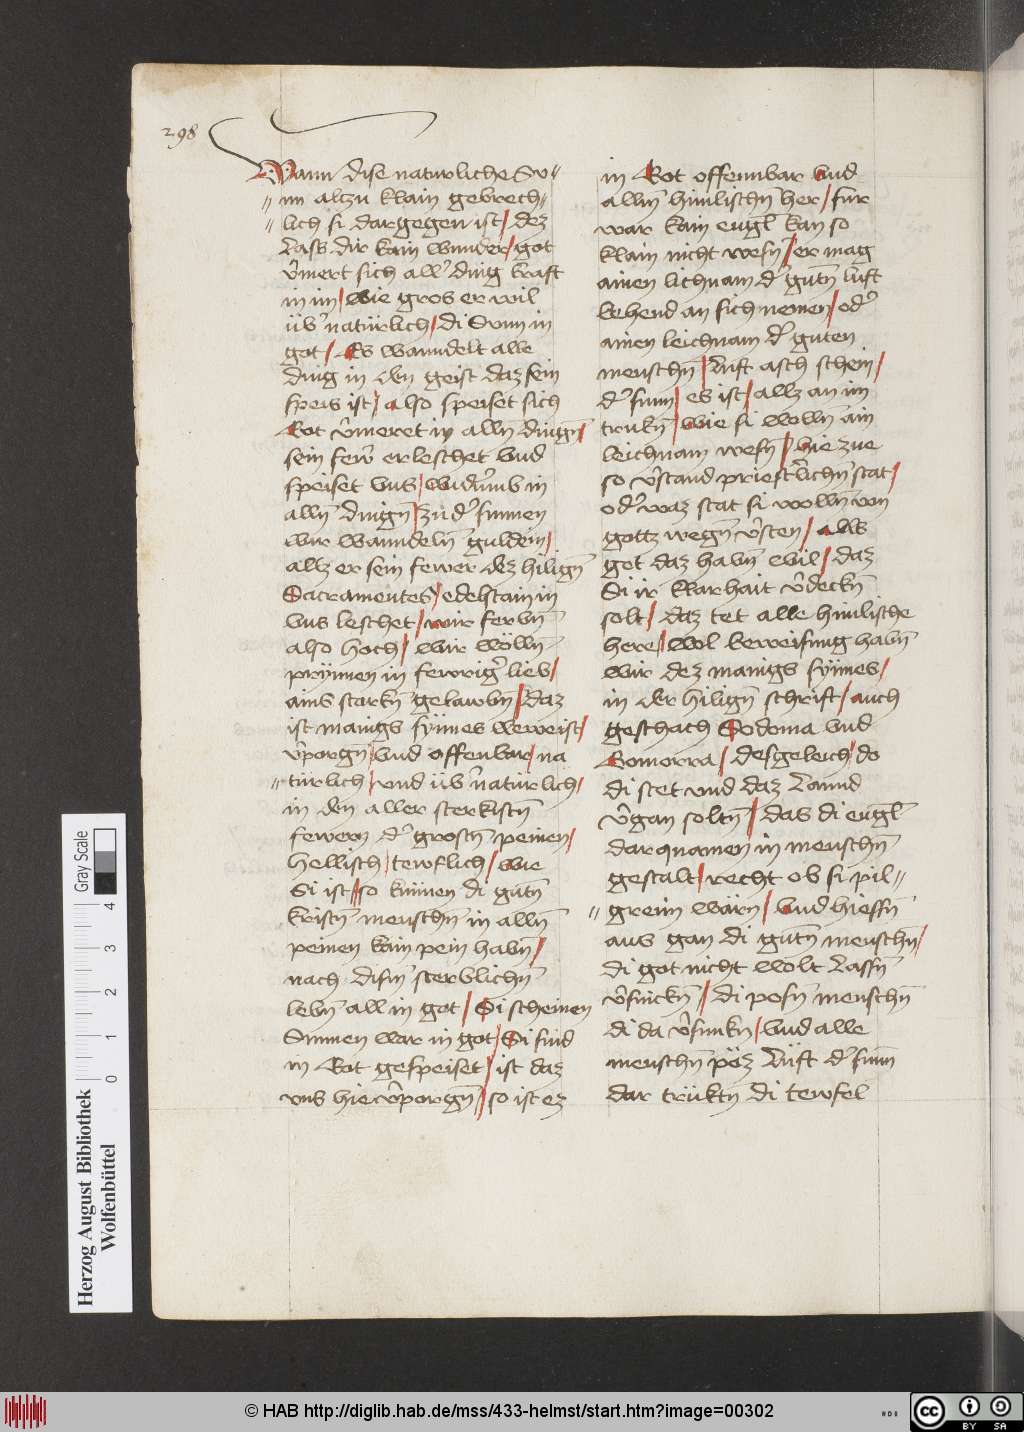 298
Wann dise naturliche Su⸗
⸗ nn alczu klain gebrech⸗
⸗ lich si dargegen ist / dez
lass dir kain wunder / got
v̄mert sich all' ding kraft
in im / wie gros er wil
üb' natürlich / di Sunn in
got / Es wanndelt alle
ding in den geist daz sein
speis ist / also speiset sich
Got v̄meret in alln̄ dingn̄ /
sein few̄r erleschet vnd
speiset vns / wid'umb in
alln̄ dingn̄ / zu d' sunnen
wir wanndeln̄ guldein /
allz er sein fewer dez hilign̄
Sacramentes / edelstain in
vns leschet / wir ferbn̄
also hoch / wir wölln̄
prynnen in fewrig' lieb /
ains starkn̄ gelawbn̄ / daz
ist manigs synnes beweist /
v'porgn̄ / vnd offenbar / na
⸗ türlich / vnd üb'natürlich /
in den aller sterkistn̄
fewern d' grostn̄ peinen /
hellisch / tewflich / wie
Si ist / so künnen di gutn̄
kristn̄ menschn̄ in alln̄
peinen kain pein habn̄ /
nach dism̄ sterblichn̄
lebn̄ all in got / Si scheinen
Sunnen war in got / Si sind
in Got gespeiset / ist daz
vns hie v'porgn̄ / so ist ez
in Got offennbar vnd
alln̄ himlischn̄ her / für
war kain engl kan so
klain nicht wesn̄ / er mag
ainen lichnam d' gutn̄ luft
behend an sich nemen / od'
ainen leichnam d' guten
menschn̄ / luft asch schein /
d' sunn / es ist / allz an im
trukn̄ / wie si wolln̄ ain
leichnam wesn̄ / hie zue
so v'stand priest'lichn̄ stat /
od' waz stat si wolln̄ von
gottz wegn̄ v'sten / alls
got daz habn̄ wil / daz
Si ir klarhait v'deckn̄
solt / daz tet alle himlische
here / wol beweisung habn̄
wir dez manigs synnes /
in der hilign̄ schrift / auch
geschach Sodoma vnd
Gomorra / desgeleich / do
di stet vnd daz lannd
v'gan soltn̄ / das di engl
dar quamen in menschn̄
gestalt / recht ob si pil⸗
⸗ greim wärn̄ / vnd hiessn̄
aus gan di gutn̄ menschn̄ /
di got nicht wolt lassn̄
v'sinckn̄ / di posn̄ menschn̄
di da v'sunkn̄ / vnd alle
menschn̄ pöz luft d' sunn̄
dar trüktn̄ di tewfel
Herzog August Bibliothek
Wolfenbüttel
0 1 2 3 4
Gray Scale
© HAB http://diglib.hab.de/mss/433-helmst/start.htm?image=00302
cc BY SA